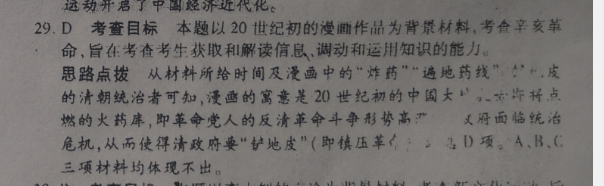 运动开启了中国经济近代化。
29. D 考查目标 本题以 20 世纪初的漫画作品为背景材料,考查辛亥革
命,旨在考查考生获取和解读信息、调动和运用知识的能力。
思路点拨 从材料所给时间及漫画中的“炸药”“遍地药线” 皮
的清朝统治者可知,漫画的寓意是 20 世纪初的中国 将点
燃的火药库,即革命党人的反清革命斗争形势高 府面临统治
危机,从而使得清政府要“铲地皮”(即镇压革 D 项。A、B、C
三项材料均体现不出。